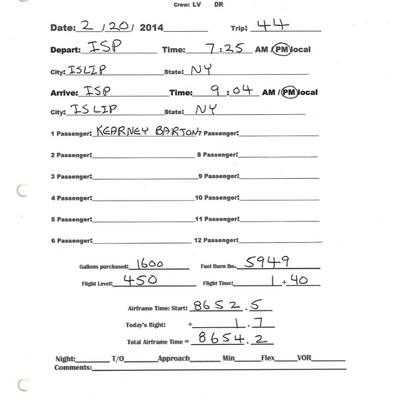 Crew: LV DR
Date: 2 / 20 / 2014 Trip: 44
Depart: ISP Time: 7:25 AM / PM local
City: ISLIP State: NY
Arrive: ISP Time: 9:04 AM / PM local
City: ISLIP State: NY
1 Passenger: KEARNEY BARTON 7 Passenger:
2 Passenger: 8 Passenger:
3 Passenger: 9 Passenger:
4 Passenger: 10 Passenger:
5 Passenger: 11 Passenger:
6 Passenger: 12 Passenger:
Gallons purchased: 1600 Fuel Burn lbs. 5949
Flight Level: 450 Flight Time: 1 + 40
Airframe Time: Start: 8652.5
Today's flight: + 1.7
Total Airframe Time = 8654.2
Night: T/O Approach Min Flex VOR
Comments: